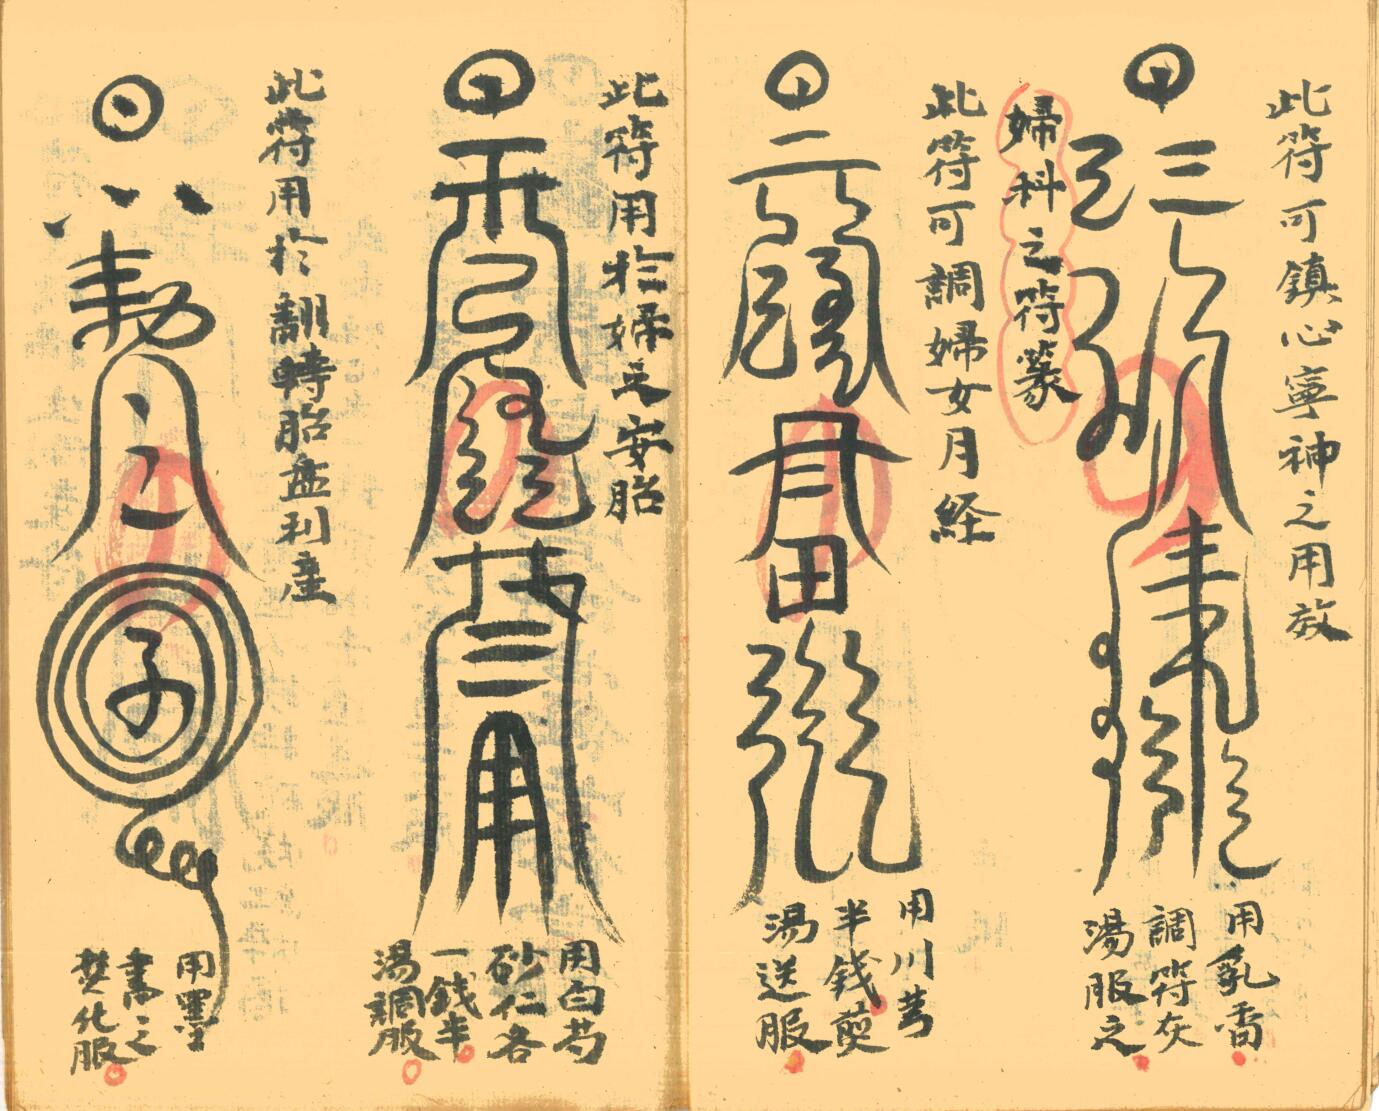 此符可鎮心寧神之用效
用乳香
調符灰
湯服之
婦科之符篆
此符可調婦女月経
田
用川芎
半錢煎
湯送服
此符用於婦之安胎
用白芍
砂仁各
一錢半
湯調服
此符用於翻轉胎盂利產
勅
子
用墨
書之
焚化服